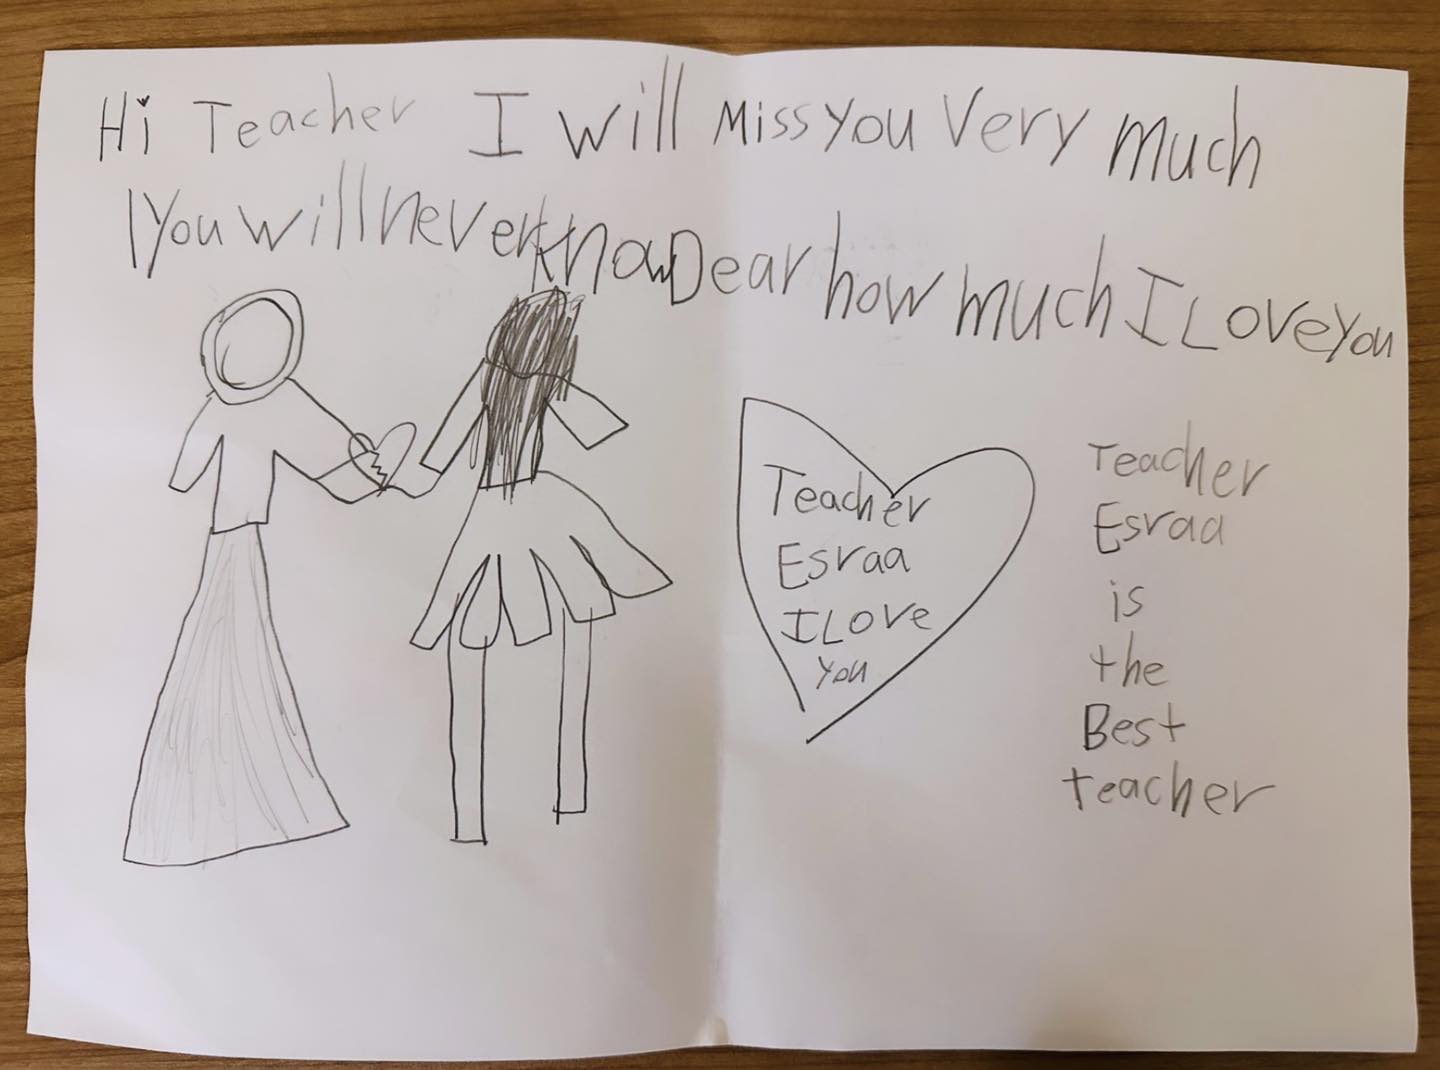 Hi Teacher I will Miss you Very much
you will never know Dear how much I Love you
Teacher
Esraa
I Love
you
Teacher
Esraa
is
the
Best
teacher